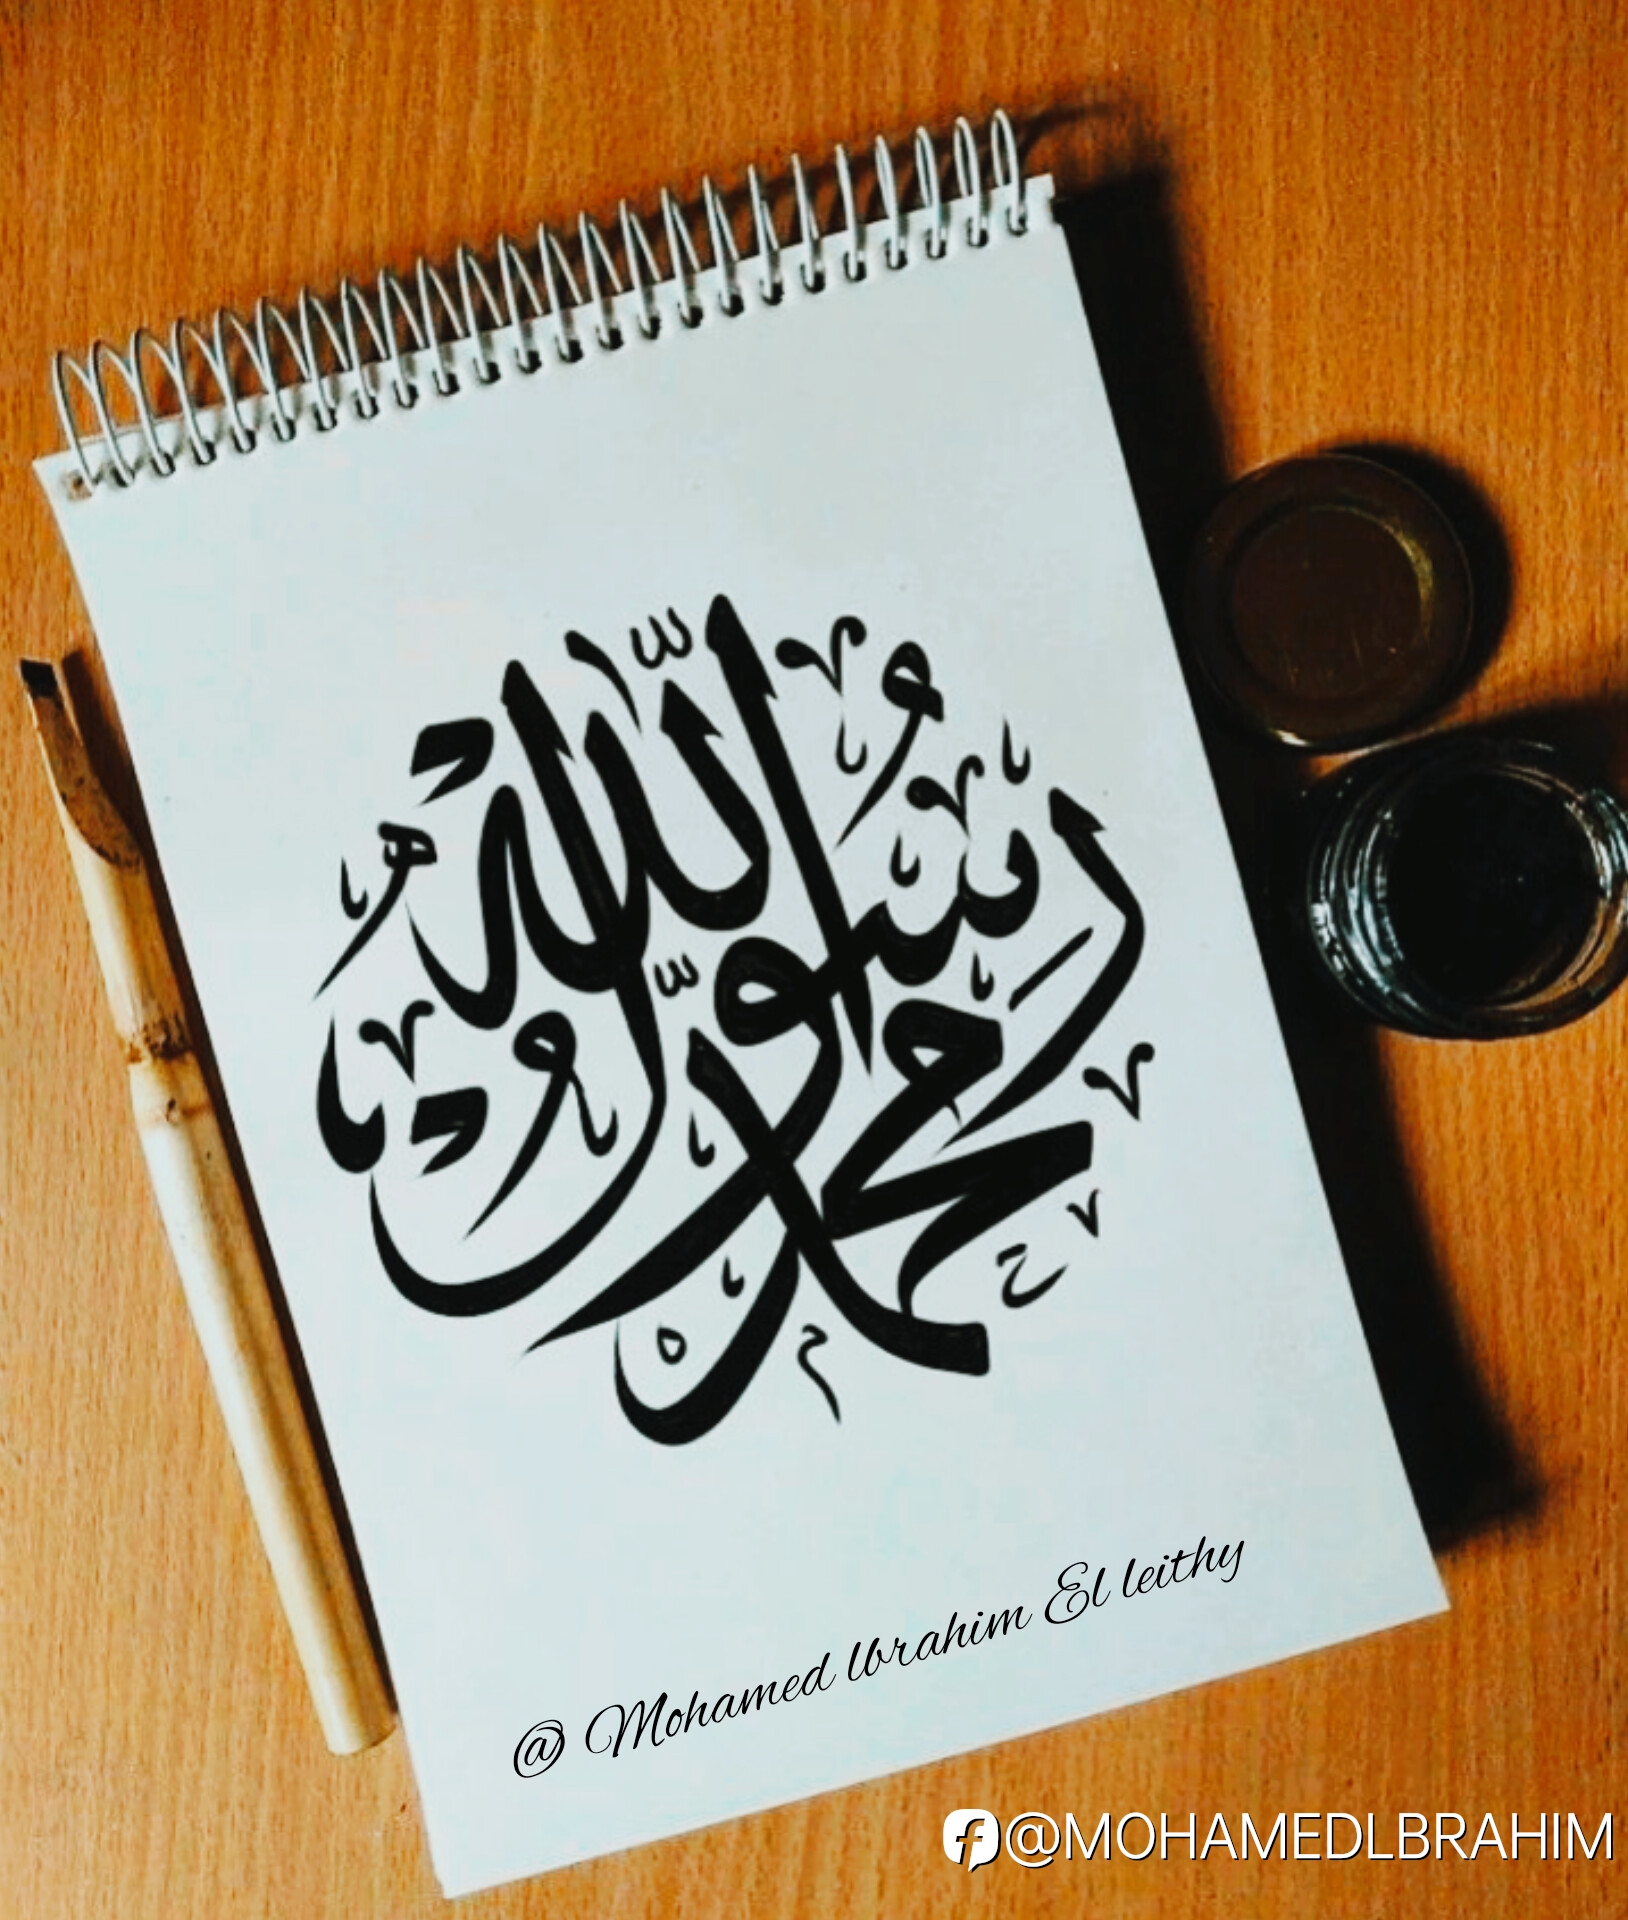 محمد رسول الله
@ Mohamed lbrahim El leithy
@MOHAMEDLBRAHIM